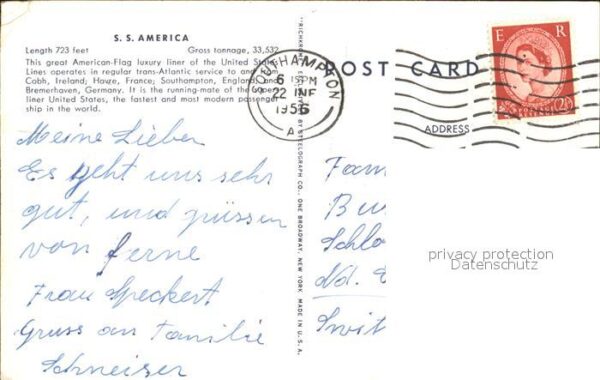 S. S. AMERICA
Length 723 feet Gross tonnage, 33,532
This great American-Flag luxury liner of the United States
Lines operates in regular trans-Atlantic service to and from
Cobh, Ireland; Havre, France; Southampton, England; and
Bremerhaven, Germany. It is the running-mate of the super-
liner United States, the fastest and most modern passenger
ship in the world.
Meine Lieber
Es geht uns sehr
gut, und grüssen
von ferne
Frau Speckert
Gruss an Familie
Schneiser
BY STELOGRAPH CO., ONE BROADWAY, NEW YORK. MADE IN U. S. A.
SOUTHAMPTON
6 15 PM
22 JNE
1956
A
POST CARD
ADDRESS
E R
POSTAGE
REVENUE
2½D
Fam
Bu
Schlo
Nd. E
Swit
privacy protection
Datenschutz